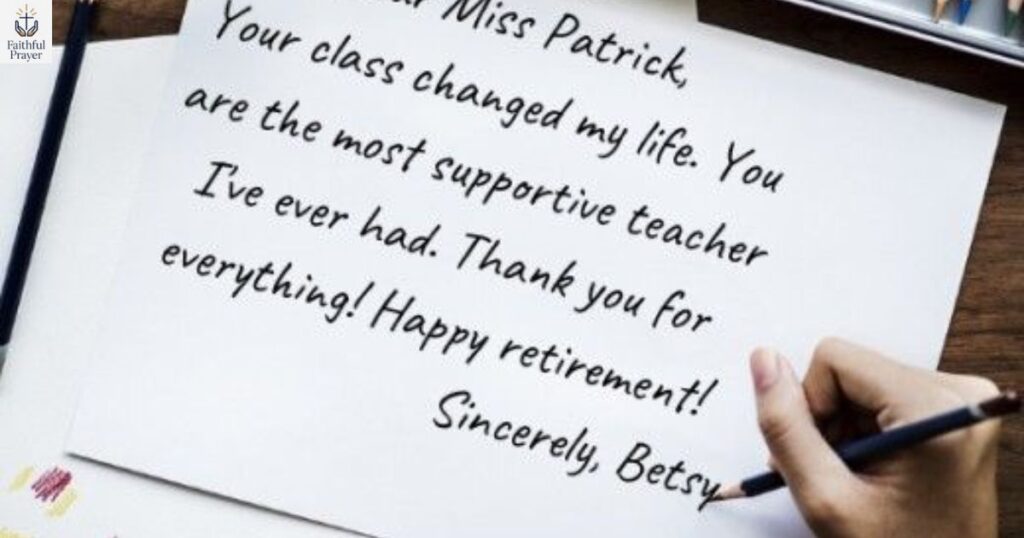 Faithful
Prayer
Miss Patrick,
Your class changed my life. You
are the most supportive teacher
I've ever had. Thank you for
everything! Happy retirement!
Sincerely, Betsy